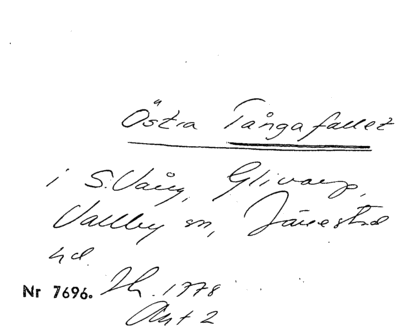 Östra Tångafallet
i S. Vång, Glivarp,
Vallby sn, Järrestad
hd
Nr 7696. 1978
Ant 2